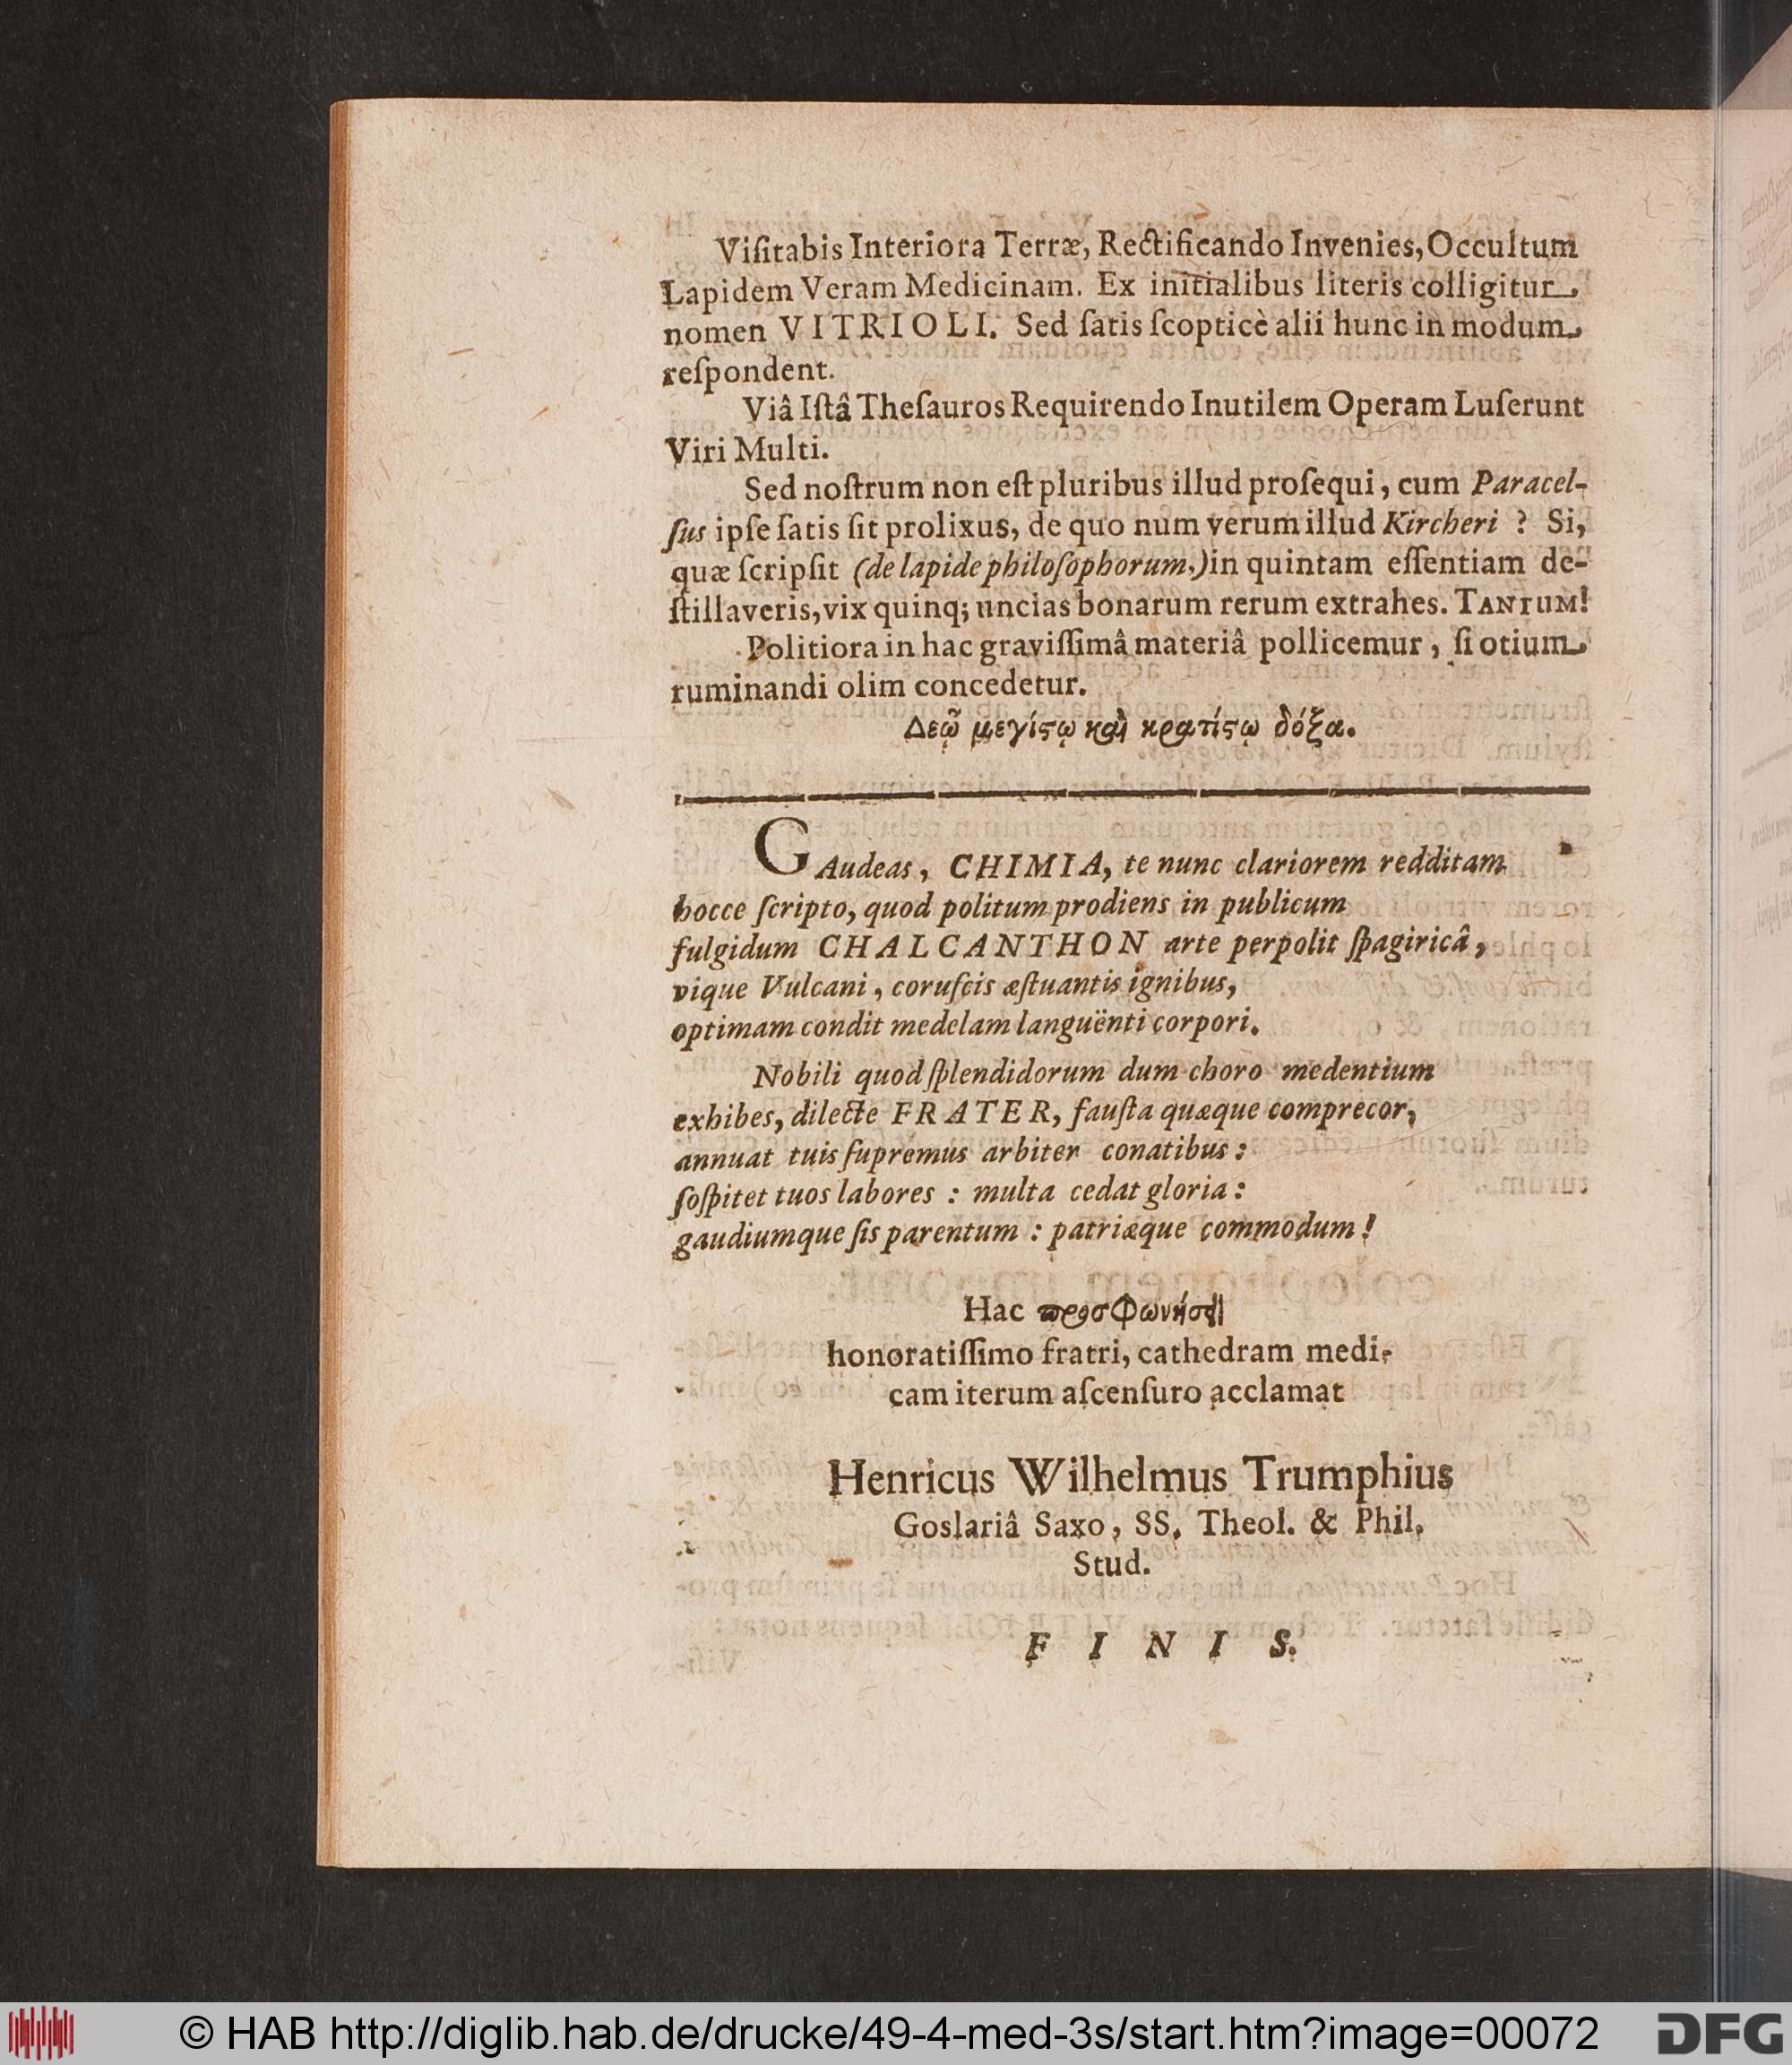 Viſitabis Interiora Terræ, Rectificando Invenies, Occultum
Lapidem Veram Medicinam. Ex initialibus literis colligitur
nomen VITRIOLI. Sed ſatis ſcopticè alii hunc in modum
reſpondent.
Viâ Iſtâ Theſauros Requirendo Inutilem Operam Luſerunt
Viri Multi.
Sed noſtrum non eſt pluribus illud proſequi, cum Paracel-
ſus ipſe ſatis ſit prolixus, de quo num verum illud Kircheri? Si,
quæ ſcripſit (de lapide philoſophorum,) in quintam eſſentiam de-
ſtillaveris, vix quinq; uncias bonarum rerum extrahes. TANTUM!
Politiora in hac graviſſimâ materiâ pollicemur, ſi otium
ruminandi olim concedetur.
Δεῷ μεγίςῳ καὶ κρατίςῳ δόξα.
GAudeas, CHIMIA, te nunc clariorem redditam
hocce ſcripto, quod politum prodiens in publicum
fulgidum CHALCANTHON arte perpolit ſpagiricâ,
vique Vulcani, coruſcis æſtuantis ignibus,
optimam condit medelam languënti corpori.
Nobili quod ſplendidorum dum choro medentium
exhibes, dilecte FRATER, fauſta quæque comprecor,
annuat tuis ſupremus arbiter conatibus:
ſoſpitet tuos labores: multa cedat gloria:
gaudiumque ſis parentum: patriæque commodum!
Hac προσφωνήσει
honoratiſſimo fratri, cathedram medi-
cam iterum aſcenſuro acclamat
Henricus Wilhelmus Trumphius
Goslariâ Saxo, SS. Theol. & Phil.
Stud.
FINIS.
© HAB http://diglib.hab.de/drucke/49-4-med-3s/start.htm?image=00072
DFG